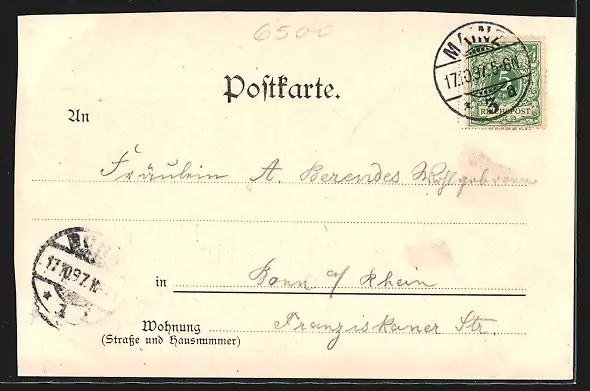 6500
MAINZ
17.10.97.5-6N.
* 3 a
5
REICHSPOST
Postkarte.
An
Fräulein A. Berendes Wohlgeboren
17.10.97.
in Bonn a/ Rhein
Wohnung Franziskaner Str.
(Straße und Hausnummer)